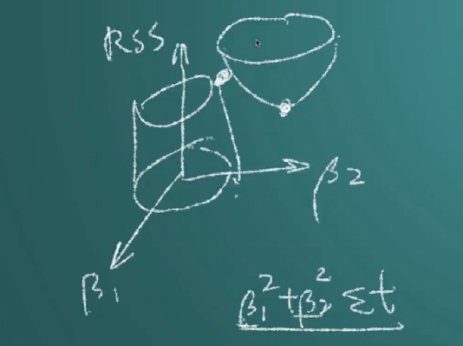 RSS
β2
β1
β1² + β2² ≤ t